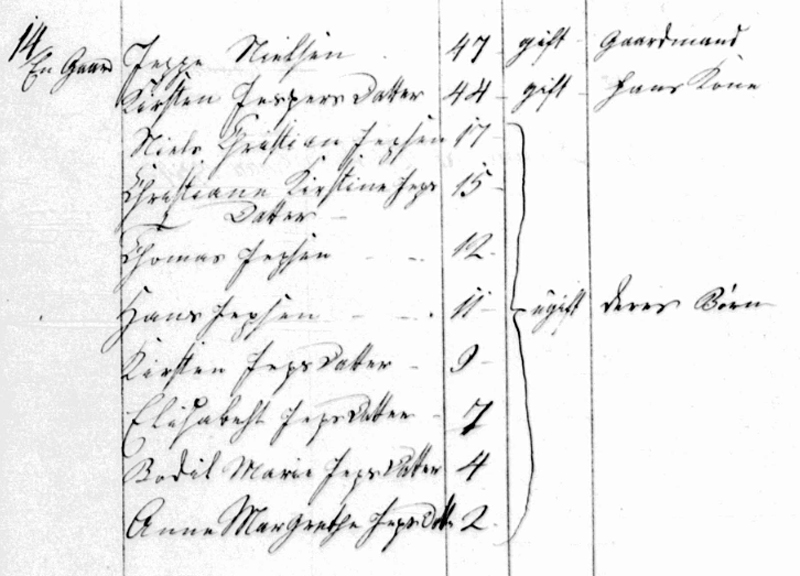 14
En Gaard Jeppe Nielsen 47 gift Gaardmand
Kirsten Jespers Datter 44 gift hans Kone
Niels Christian Jepsen 17
Christiane Kirstine Jeps 15
Datter
Thomas Jepsen 12
Hans Jepsen 11 ugift deres Børn
Kirsten JepsDatter 9
Elisabeht JepsDatter 7
Bodil Marie JepsDatter 4
Anne Margrethe JepsDatt 2